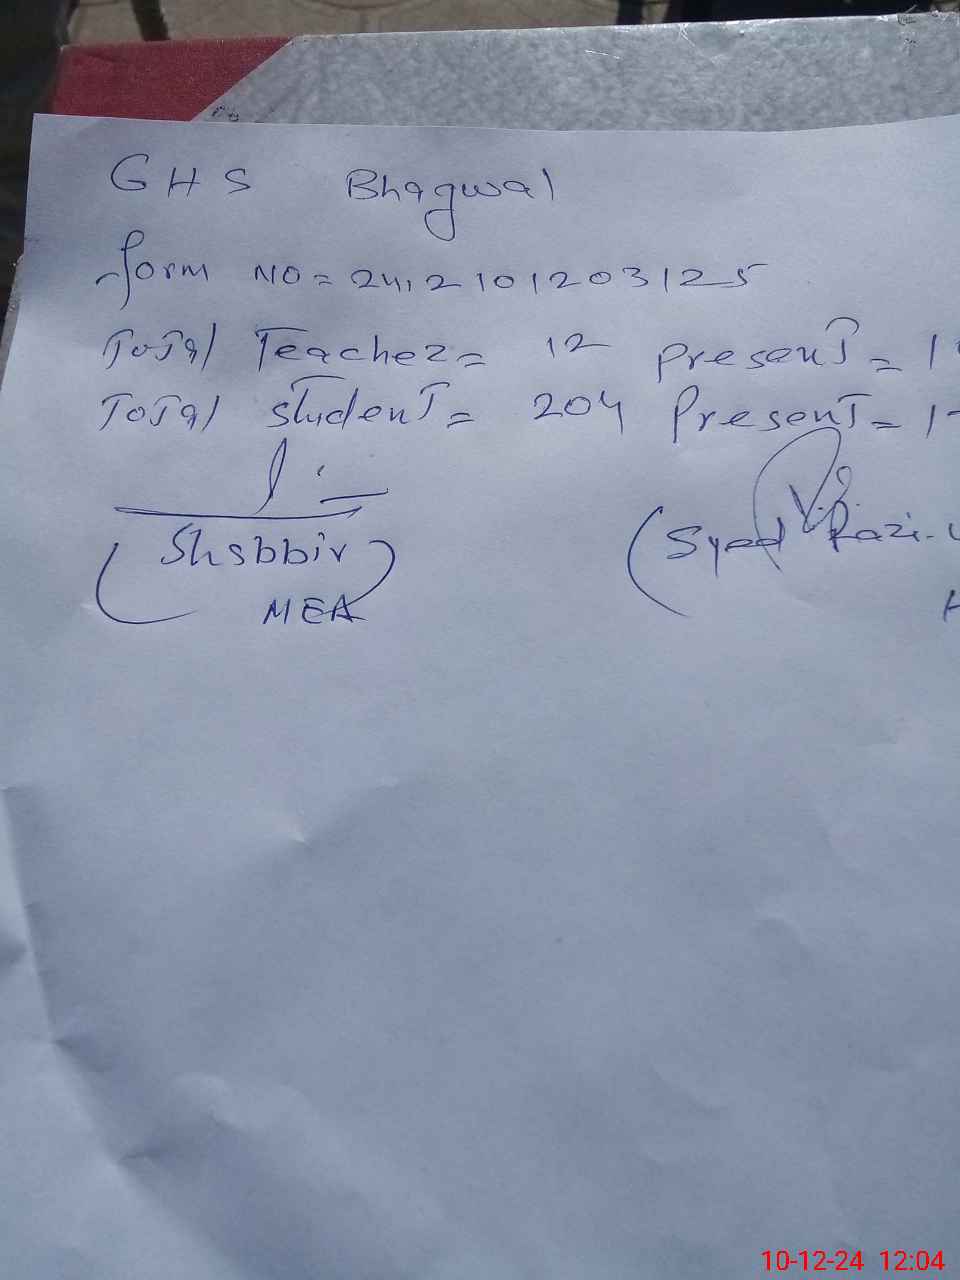 GHS Bhagwal
form NO = 2412101203125
Total Teacher = 12 present = 1
Total student = 204 Present = 1
(Shabbir)
MEA
(Syed Razi-
10-12-24 12:04